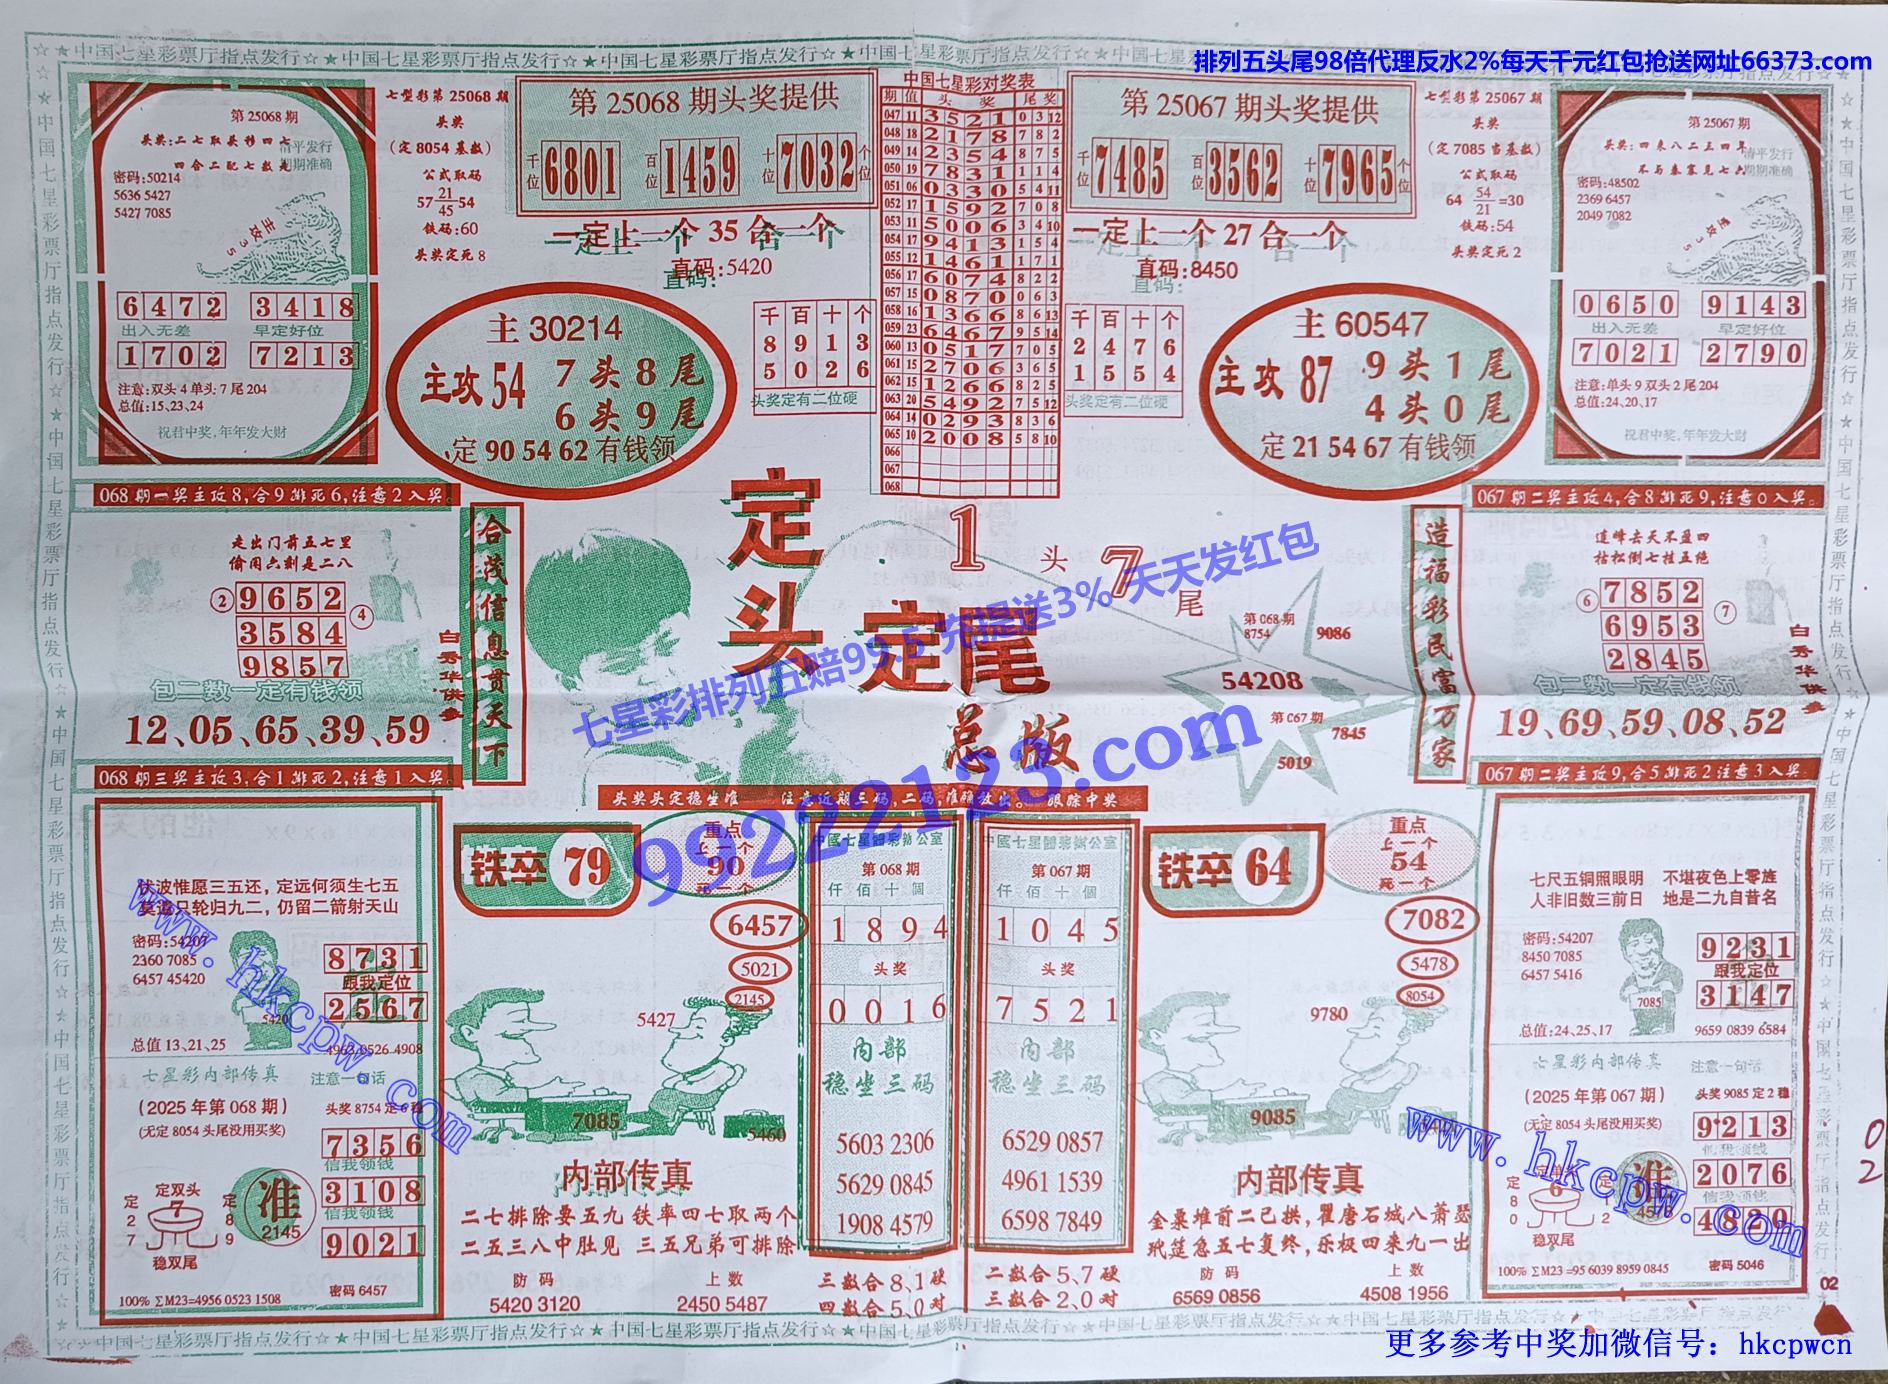 排列五头尾98倍代理反水2%每天千元红包抢送网址66373.com
☆★中国七星彩票厅指点发行☆★中国七星彩票厅指点发行☆★中国七星彩票厅指点发行☆★中国七星彩票厅指点发行☆★
第25068期
头奖:二七取头移四七
四合二配七数是
清平发行
期期准确
密码:50214
5636 5427
5427 7085
主攻35
6472 3418
出入无差 早定好位
1702 7213
注意:双头4单头7尾204
总值:15、23、24
祝君中奖,年年发大财
七型彩第25068期
头奖
(定8054基数)
公式取码
57 21/45 54
铁码:60
头奖定死8
第25068期头奖提供
千位 6801 百位 1459 十位 7032 个位
一定上一个35合一个
直码:5420
主30214
主攻54 7头8尾
6头9尾
定90 54 62有钱领
千百十个
8913
5026
头奖定有二位硬
中国七星彩对奖表
期 值 头奖 尾奖
047 11 3521 0 3 12
048 18 2178 7 8 2
049 14 2354 8 7 5
050 19 7831 1 1 4
051 06 0330 5 4 11
052 17 1592 7 0 8
053 11 5006 3 4 10
054 17 9413 1 5 4
055 12 1461 1 7 1
056 17 6074 8 2 2
057 15 0870 0 6 3
058 16 1366 8 6 13
059 23 6467 9 5 14
060 13 0517 7 0 5
061 15 2706 3 6 5
062 15 1266 8 2 5
063 20 5492 7 5 12
064 14 0293 8 3 6
065 10 2008 5 8 10
066
067
068
第25067期头奖提供
千位 7485 百位 3562 十位 7965 个位
一定上一个27合一个
直码:8450
千百十个
2476
1554
头奖定有二位硬
主60547
主攻87 9头1尾
4头0尾
定21 54 67有钱领
七型彩第25067期
头奖
(定7085当基数)
公式取码
64 54/21 =30
铁码:54
头奖定死2
第25067期
头奖:四来八二三四年
不与秦塞见七六
清平发行
期期准确
密码:48502
2369 6457
2049 7082
主攻35
0650 9143
出入无差 早定好位
7021 2790
注意:单头9双头2尾204
总值:24、20、17
祝君中奖,年年发大财
068期一奖主攻8,合9排死6,注意2入奖。
走出门前五七里
偷闲六剩是二八
② 9652 ④
3584
9857
包二数一定有钱领
12、05、65、39、59
白秀华供参
合茂信息贯天下
定头定尾
1头7尾
总版
第068期
8754
9086
54208
第067期
7845
5019
造福彩民富万家
067期二奖主攻4,合8排死9,注意0入奖。
道峰去天不盈四
枯松倒七挂五绝
⑥ 7852 ⑦
6953
2845
包二数一定有钱领
19、69、59、08、52
白秀华供参
七星彩排列五赔99.5 充提送3% 天天发红包
99222123.com
068期三奖主攻3,合1排死2,注意1入奖。
伏波惟愿三五还,定远何须生七五
莫道只轮归九二,仍留二箭射天山
密码:54207
2360 7085
6457 45420
5420
8731
跟我定位
2567
总值13、21、25
4963 0526 4908
七星彩内部传真
注意一句话
(2025年第068期)
(无定8054头尾没用买奖)
头奖8754定6稳
7356
信我领钱
3108
信我领钱
9021
定双头
定27
7
定89
稳双尾
准
2145
100% ΣM23=4956 0523 1508
密码6457
头奖头定稳坐准 注意近期三码,二码,准确放出。 跟踪中奖
铁卒79
重点
上一个
90
死一个
6457
5021
2145
5427
7085
5460
内部传真
二七排除要五九 铁率四七取两个
二五三八中肚见 三五兄弟可排除
防码
5420 3120
上数
2450 5487
中國七星體彩辦公室
第068期
仟佰十個
1894
头奖
0016
内部
稳坐三码
5603 2306
5629 0845
1908 4579
三数合8、1硬
四数合5、0对
中國七星體彩辦公室
第067期
仟佰十個
1045
头奖
7521
内部
稳坐三码
6529 0857
4961 1539
6598 7849
二数合5、7硬
三数合2、0对
铁卒64
重点
上一个
54
死一个
7082
5478
8054
9780
9085
内部传真
金粟堆前二已拱,瞿唐石城八萧瑟
玳筵急五七复终,乐极四来九一出
防码
6569 0856
上数
4508 1956
067期二奖主攻9,合5排死2注意3入奖。
七尺五铜照眼明 不堪夜色上零旌
人非旧数三前日 地是二九自昔名
密码:54207
8450 7085
6457 5416
7085
9231
跟我定位
3147
总值:24、25、17
9659 0839 6584
七星彩内部传真
注意一句话
(2025年第067期)
(无定8054头尾没用买奖)
头奖9085定2稳
9213
信我领钱
2076
信我领钱
4820
定单头
定80
6
稳双尾
准
100% ΣM23=95 6039 8959 0845
密码5046
02
02
www.hkcpw.com
www.hkcpw.com
☆★中国七星彩票厅指点发行☆★中国七星彩票厅指点发行☆★中国七星彩票厅指点发行☆★中国七星彩票厅指点发行☆★
更多参考中奖加微信号：hkcpwcn